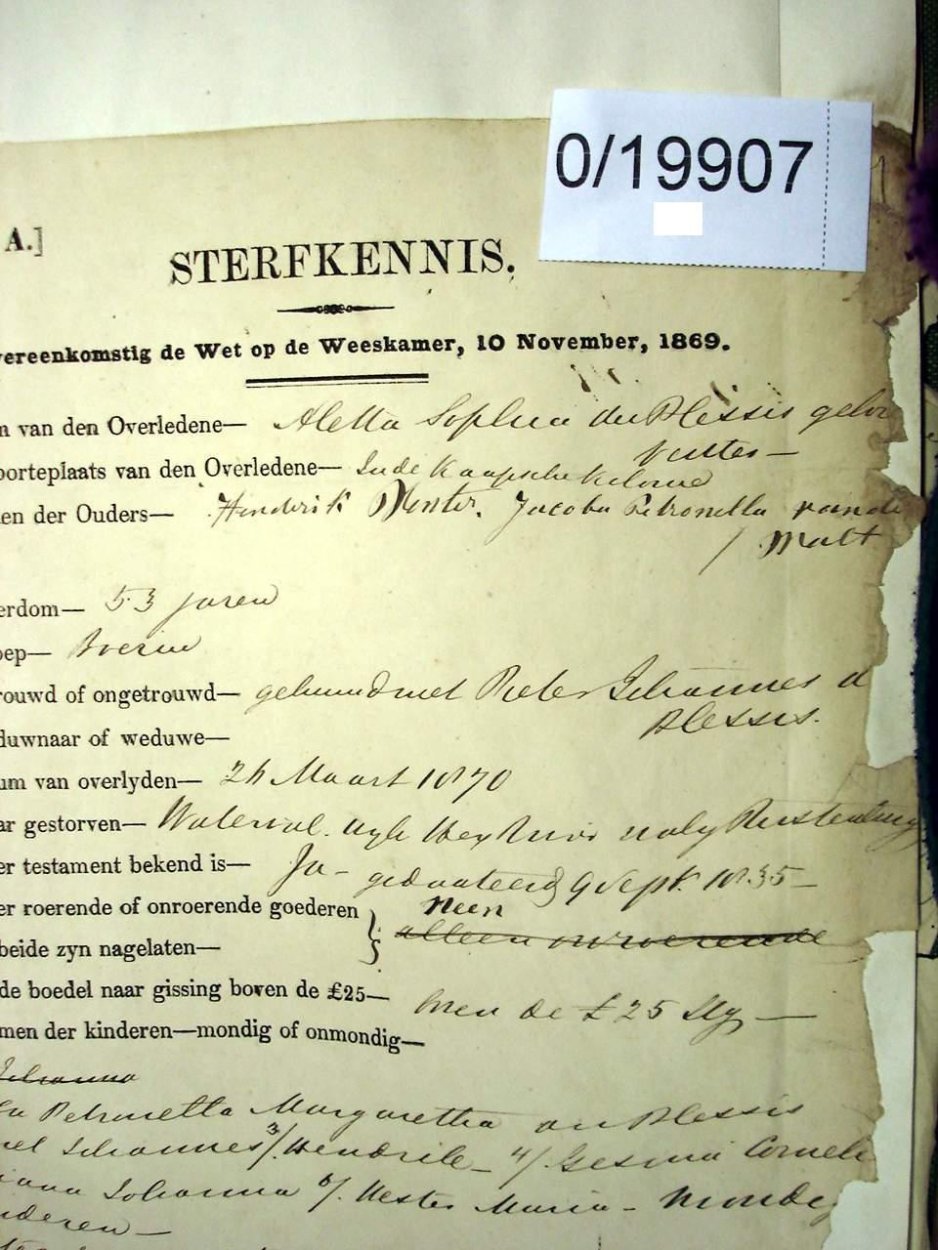 0/19907
A.]
STERFKENNIS.
vereenkomstig de Wet op de Weeskamer, 10 November, 1869.
n van den Overledene— Aletta Sophia du Plessis gebor
oorteplaats van den Overledene— In de Kaapsche Kolonie
en der Ouders— Hendrik Jacoba Petronella van de
/ Malt
erdom— 53 jaren
oep— Boerin
rouwd of ongetrouwd— gehuwd met Pieter Johannes d
Plessis.
duwnaar of weduwe—
um van overlyden— Maart 1870
ar gestorven— Waterval. wyk Hex Rivier Rustenburg
er testament bekend is— Ja - gedateerd 9 Sept. 1835—
er roerende of onroerende goederen Neen
beide zyn nagelaten— alleen onroerende
de boedel naar gissing boven de £25— boven de £25 Stg —
men der kinderen—mondig of onmondig—
Johanna
Petronella Margaretha du Plessis
Johannes 3/ Hendrik - 4/ Gesina Corneli
Johanna 6/ Hester Maria - mondig
nderen —